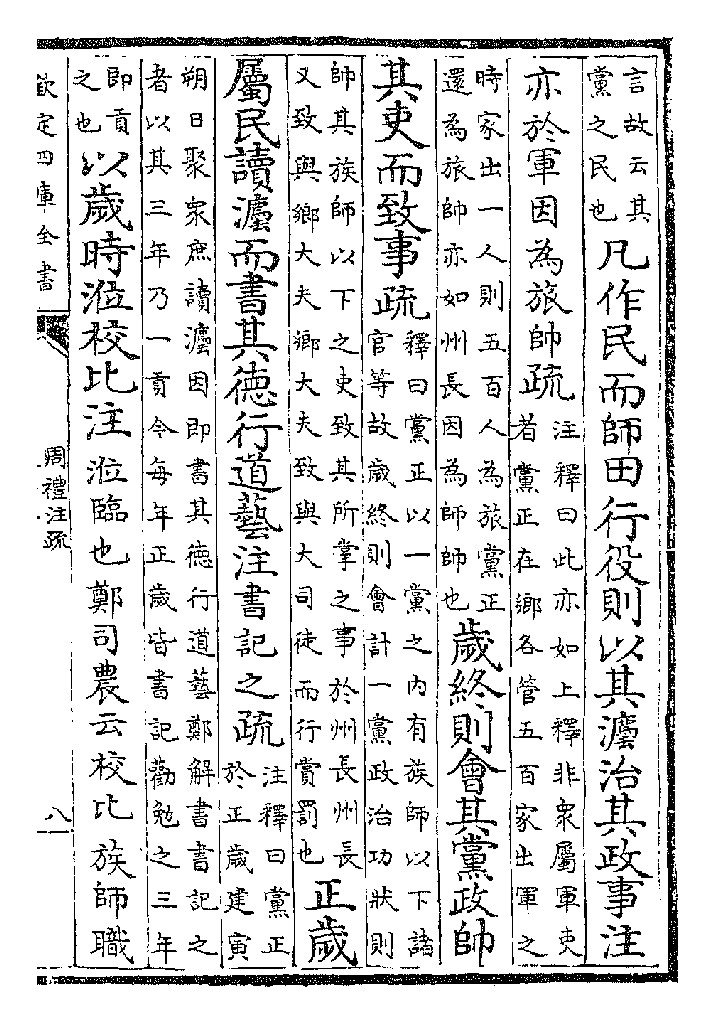 言故云其
黨之民也
凡作民而師田行役則以其灋治其政事注
亦於軍因為旅帥疏
注釋曰此亦如上釋非衆屬軍吏
者黨正在鄉各管五百家出軍之
時家出一人則五百人為旅黨正
還為旅帥亦如州長因為師師也
歲終則會其黨政帥
其吏而致事疏
釋曰黨正以一黨之内有族師以下諸
官等故歲終則會計一黨政治功狀則
師其族師以下之吏致其所掌之事於州長州長
又致與鄉大夫鄉大夫致與大司徒而行賞罰也
正歲
屬民讀灋而書其德行道藝注書記之疏
注釋曰黨正
於正歲建寅
朔日聚衆庶讀灋因即書其德行道藝鄭解書書記之
者以其三年乃一貢今每年正歲皆書記勸勉之三年
即貢
之也
以歲時涖校比注涖臨也鄭司農云校比族師職
欽定四庫全書
周禮注疏
八